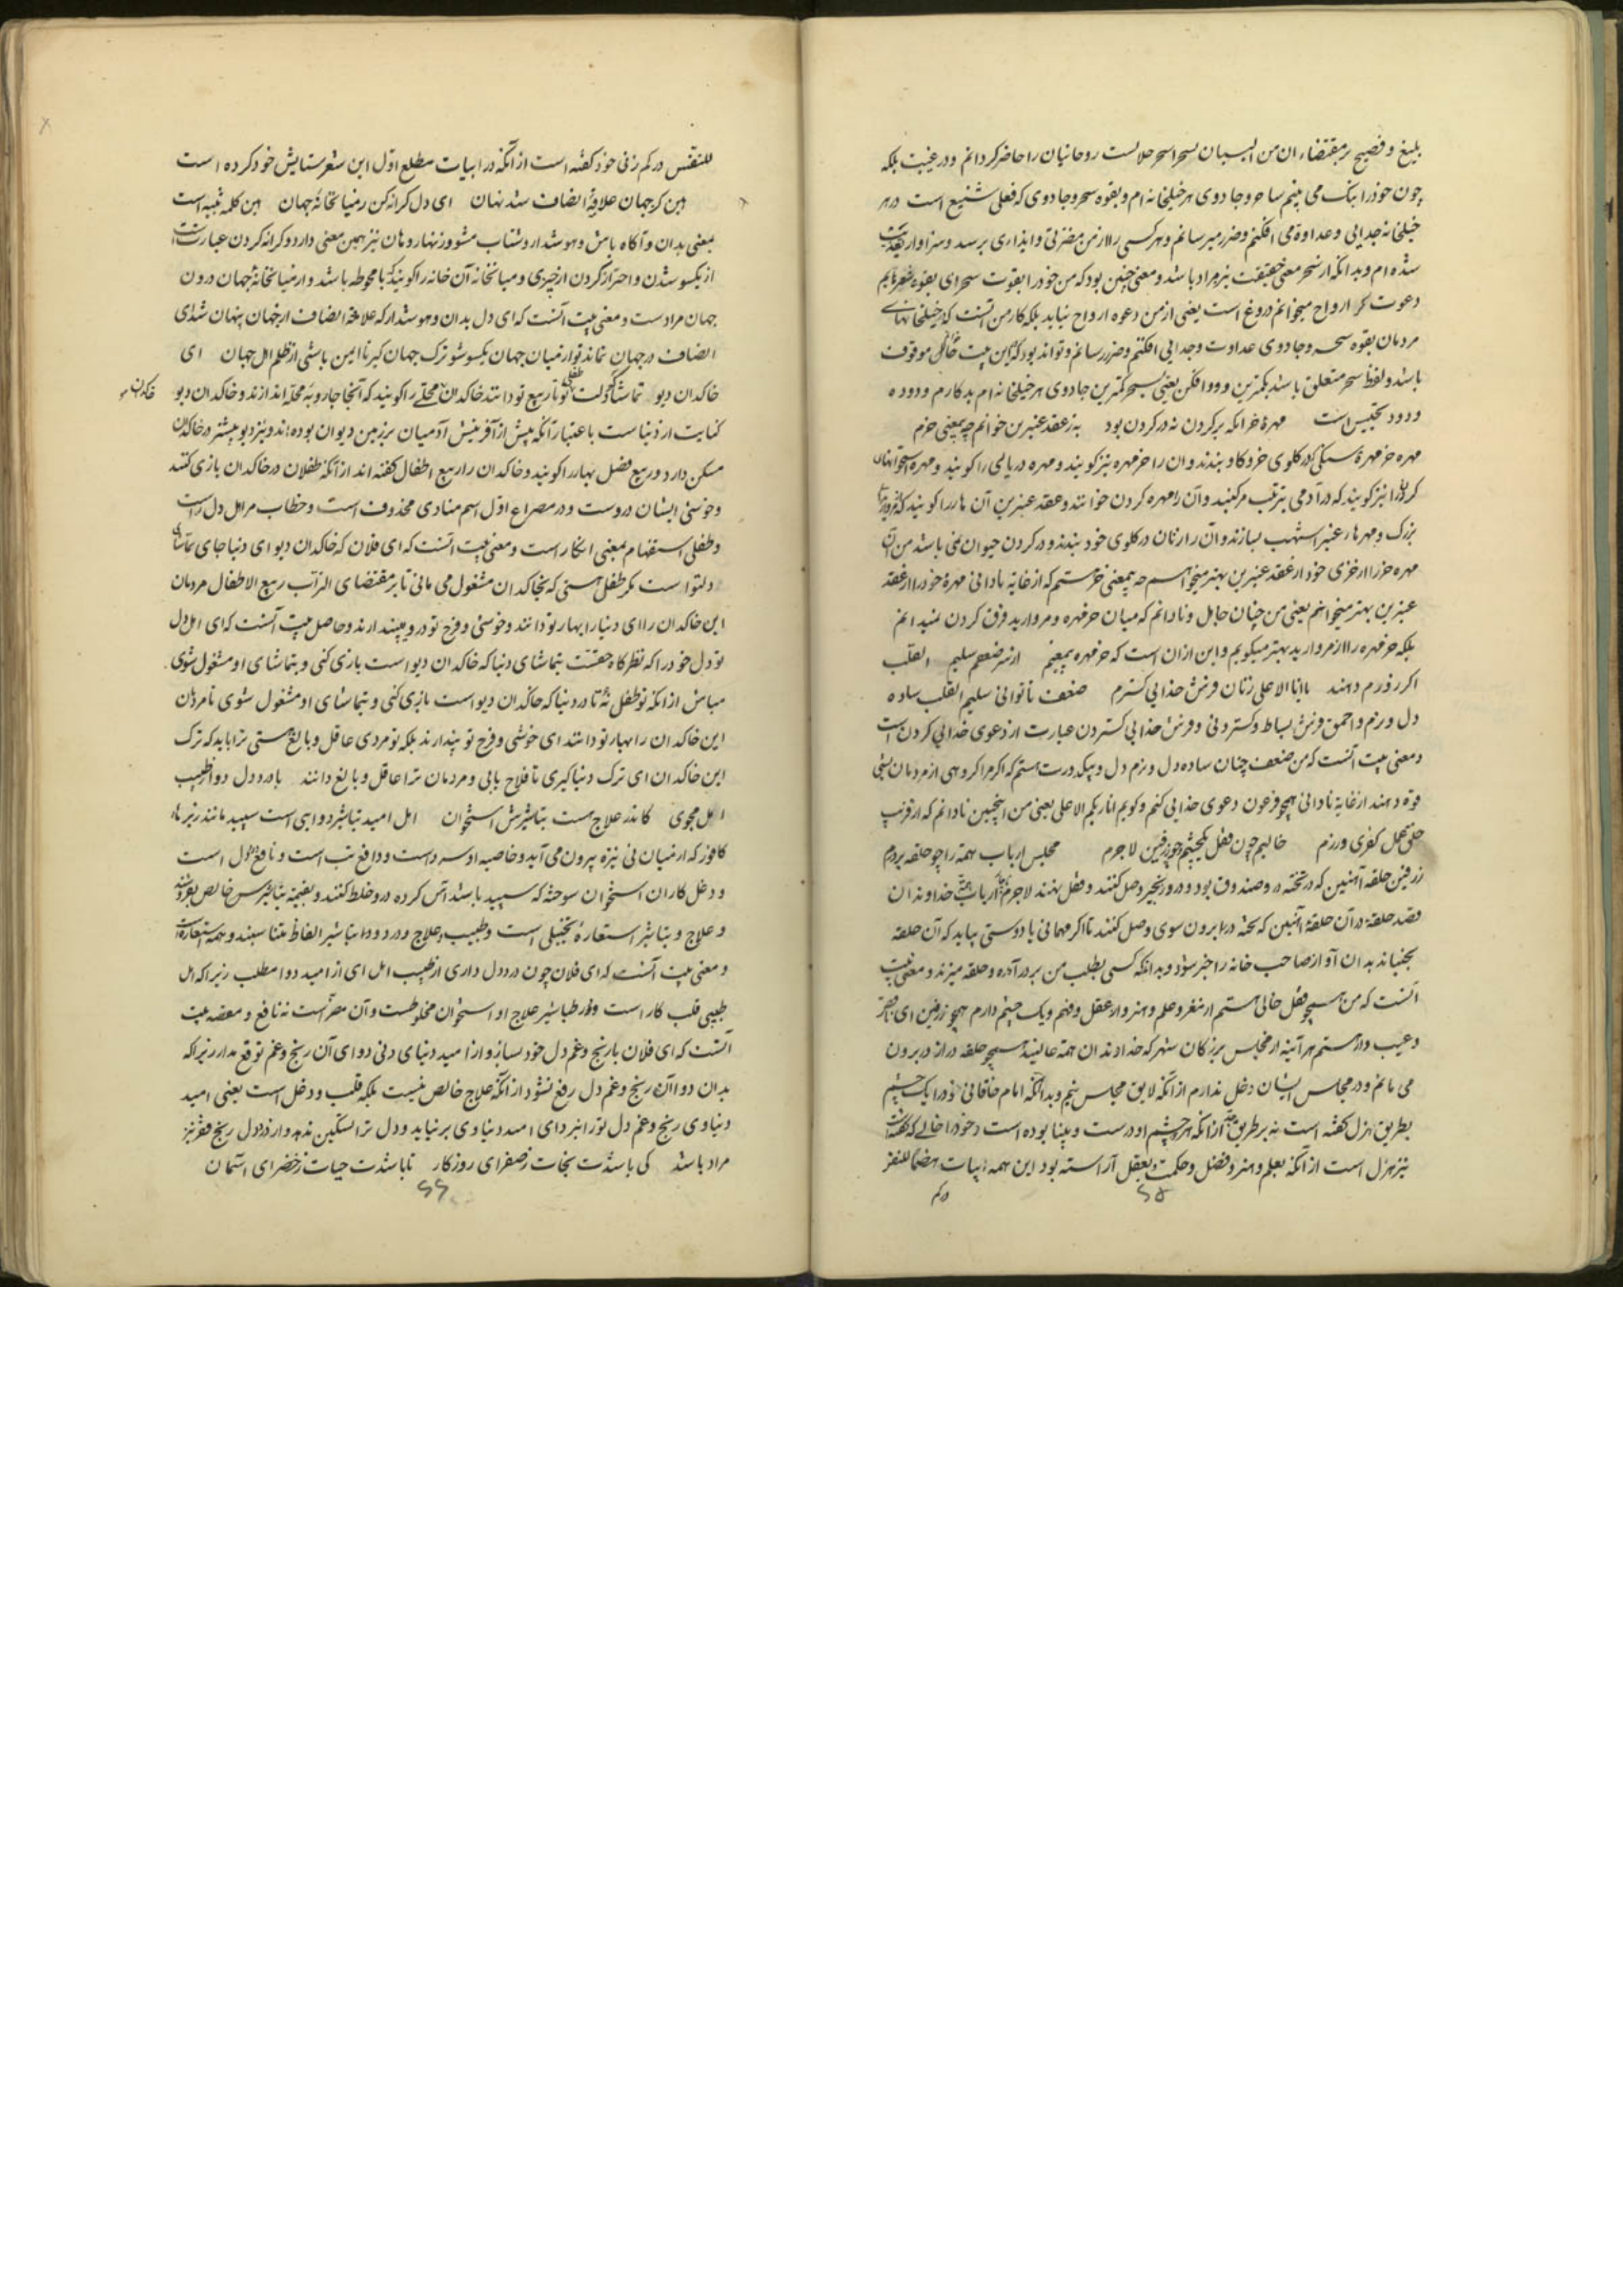 بلیغ و فصیح بر مقتضاء ان من البیان لسحرا سحر حلالست روحانیان را حاضر کردانم و در غیبت بلکه
چون خود را نیک می بینم ساحر و جادوی هر خیلخانه ام و بقوه سحر و جادوی که فعلی شنیع است در هر
خیلخانه جدایی و عداوة می افکنم و ضرر میرسانم و هر کسی را از من مضرتی و ایذاری برسد و سزاوار
شده ام و بدانکه از سحر معنی حقیقت نیز مراد باشد و معنی چنین بود که من خود را بقوت سحر ای بقوه
دعوت کر ارواح میخوانم دروغ است یعنی از من دعوه ارواح نیاید بلکه کار من آنست که در خیلخانهای
مردمان بقوه سحر و جادوی عداوت و جدایی افکنم و ضرر رسانم و تواند بود که این بیت موقوف
باشد و لفظ سحر متعلق باشد بکمترین و دو افکن یعنی بسحر کمترین جادوی هر خیلخانه ام بدکارم و دود
و دود تجنیس است مهره خر آنکه بر کردن نه در کردن بود به ز عقد عنبرین خوانم چه بیمعنی خرم
مهره خر مهره سنگی که در کلوی خر و کاو بندند و آن را خر مهره نیز کویند و مهره دریایی را کویند و مهره استخوانهای
کردن را نیز کویند که در آدمی بترتب مرکبند و آن را مهره کردن خوانند و عقد عنبرین آن هار را کویند که
بزرک و مهرها از عنبر اشهب بسازند و آن را زنان در کلوی خود بندند و در کردن حیوان نمی باشد من آن
مهره خر را از خری خود از عقد عنبرین بهتر میخوانم چه بیمعنی خرستم که از غایة نادانی مهرهٔ خود را از عقد
عنبرین بهتر میخوانم یعنی من چنان جاهل و نادانم که میان خر مهره و مروارید فرق کردن نمیدانم
بلکه خر مهره را از مروارید بهتر میکویم و این از آن است که خر مهره بیمعنیم از سر ضعفم سلیم القلب
اکر زورم دهند بانا الاعلی زنان فرش خدایی کسترم ضعف ناتوانی سلیم القلب ساده
دل و نرم و احمق فرش بساط و کستردنی و فرش خدایی کستردن عبارت از دعوی خدایی کردن است
و معنی بیت آنست که من ضعف چنان ساده دل و نرم دل و بیکدورت هستم که اکر مرا کروهی از مردمان
قوه دهند از غایة نادانی همچو فرعون دعوی خدایی کنم و کویم انا ربکم الاعلی یعنی من اینچنین نادانم که از فریب
خلق جهل کفری ورزم خالیم چون قفل یکچشم چو زرفین لاجرم مجلس ارباب همة را چو حلقه بر درم
زرفین حلقه آهنین که در تخته در و صندوق بود و در و زنجیر وصل کنند و قفل نهند لاجرم ارباب همة خداوندان
قصد حلقه در آن حلقهٔ آهنین که تخته در را برون سوی وصل کنند تا اکر مهمانی یا دوستی بیاید که آن حلقه
بجنباند بدان آواز صاحب خانه را خبر شود و بداند که کسی بطلب من بر در آمده و حلقه میزند و معنی بیت
آنست که من همچو قفل خالی هستم از مغز و علم و هنر و از عقل و فهم و یک چشم دارم همچو زرفین ای
و عیب دار هستم هر آئینه از مجلس بزرکان شهر که خداوندان همة عالیند همچو حلقه در از در برون
می مانم و در مجلس ایشان دخل ندارم از آنکه لایق مجلس نیم و بدانکه امام خاقانی خود را یک چشم
بطریق هزل کفته است نه بر طریق از آنکه هر دو چشم او درست و بینا بوده است و خود را خالی که کفته
نیز هزل است از آنکه بعلم و هنر و فضل و حکمت و بعقل آراسته بود این همه ابیات هضما للنفس
در کم
۶۵
للنفس در کم زنی خود کفته است از آنکه در ابیات مطلع اول این شعر ستایش خود کرده است
هین کز جهان علامت انصاف شد نهان ای دل کرانه کن ز میانخانهٔ جهان هین کلمه تنبیه است
بمعنی بدان و آکاه باش و هوشدار و شتاب مشو و زنهار و هان نیز همین معنی دارد و کرانه کردن عبارتست
از یکسو شدن و احتراز کردن از چیزی و میانخانه آن خانه را کویند که با محوطه باشد و از میانخانهٔ جهان درون
جهان مرادست و معنی بیت آنست که ای دل بدان و هوشدار که علامة انصاف از جهان پنهان شد ای
انصاف در جهان نماند تو از میان جهان یکسو شو ترک جهان کیر تا ایمن باشی از ظلم اهل جهان ای
خاکدان دیو تماشاکه دلت طفلی تو تا ربیع تو دانند خاکدان محلتی را کویند که آنجا جاروبهٔ محله اندازند و خاکدان دیو
خاکدان
کنایت از دنیاست باعتبار آنکه پیش از آفرینش آدمیان بر زمین دیوان بوده اند و نیز دیو بیشتر در خاکدان
مسکن دارد و ربیع فصل بهار را کویند و خاکدان را ربیع اطفال کفته اند از آنکه طفلان در خاکدان بازی کنند
و خوشی ایشان دروست و در مصراع اول اسم منادی محذوف است و خطاب مر اهل دل راست
و طفلی استفهام بمعنی انکار است و معنی بیت آنست که ای فلان که خاکدان دیو ای دنیا جای تماشای
دلتو است مکر طفل هستی که بخاکدان مشغول می مانی تا بر مقتضای التراب ربیع الاطفال مردمان
این خاکدان را ای دنیا را بهار تو دانند و خوشی و فرح تو درو پندارند و حاصل بیت آنست که ای اهل دل
تو دل خود را که نظرکاه حقست بتماشای دنیا که خاکدان دیو است بازی کنی و بتماشای او مشغول شوی
مباش از آنکه تو طفل نهٔ تا در دنیا که خاکدان دیو است بازی کنی و بتماشای او مشغول شوی تا مردمان
این خاکدان را بهار تو دانند ای خوشی و فرح تو پندارند بلکه تو مردی عاقل و بالغ هستی ترا باید که ترک
این خاکدان ای ترک دنیا کیری تا فلاح یابی و مردمان ترا عاقل و بالغ دانند با درد دل دوا ز طبیب
امل مجوی کاندر علاج هست تباشیرش استخوان امل امید تباشیر دوایی است سپید مانند ریزهاء
کافور که از میان نی نیزه بیرون می آید و خاصیه او سرد است و دافع تب است و نافع است
و دغل کاران استخوان سوخته که سپید باشد آس کرده درو خلط کنند و بقیمة تباشیر خالص بفروشند
و علاج و تباشیر استعارهٔ تخییلی است و طبیب و علاج و درد و دوا و تباشیر الفاظ متناسبند و همه استعارة
و معنی بیت آنست که ای فلان چون درد دل داری از طبیب امل ای از امید دوا مطلب زیرا که امل
طبیبی قلب کار است و در طباشیر علاج او استخوان مخلوطست و آن مضر است نه نافع و مقصد بیت
آنست که ای فلان با رنج و غم دل خود بساز و از امید دنیای دنی دوای آن رنج و غم توقع مدار زیرا که
بدان دوا آن رنج و غم دل رفع نشود از آنکه علاج خالص نیست بلکه قلب و دغل است یعنی امید
دنیاوی رنج و غم دل تو را نبرد ای امید دنیاوی بر نیاید و دل ترا تسکین ندهد و از درد دل رنج فقر نیز
مراد باشد کی باشدت نجات ز صفرای روزکار تا باشدت حیات ز خضرای آسمان
۶۶